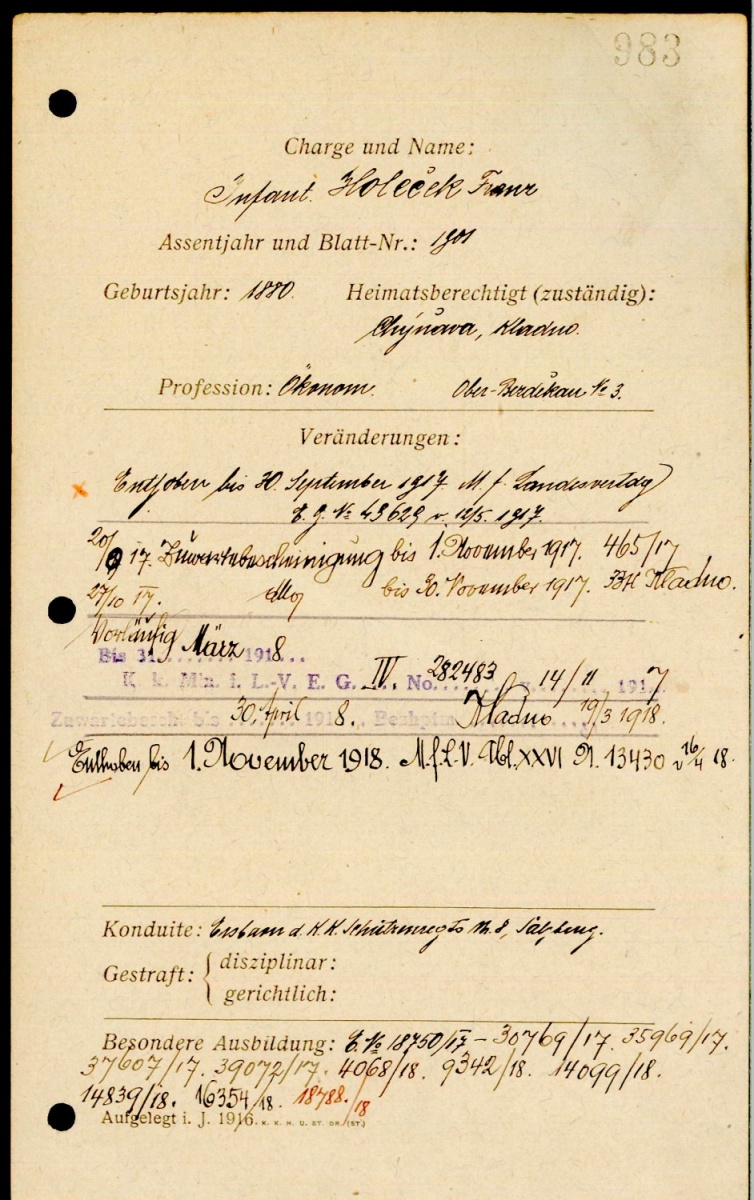 983
Charge und Name:
Infant. Holeček Franz
Assentjahr und Blatt-Nr.: 1901
Geburtsjahr: 1880. Heimatsberechtigt (zuständig):
Chýňava, Kladno.
Profession: Ökonom. Ober-Berdikau № 3.
Veränderungen:
Enthoben bis 30. September 1917. M. f. Landesvertdg
E. g. № 49629 v. 12/5. 1917.
20/9 17. Zuwartebescheinigung bis 1. November 1917. 465/17
27/10 17. dto bis 30. November 1917. BH Kladno.
Vorläufig
Bis 31. März 1918.
K. k. Min. f. L.-V. E. G. IV No. 282483 v. 14/11 1917.
Zuwartebesch. bis 30. April 1918. Bezhptm. Kladno 19/3 1918.
Enthoben bis 1. November 1918. M.f.L.V. Abt. XXVI N. 13430 v 16/4 18.
Konduite: Ersbaon d. K.K. Schützenregts Nr. 8, Salzburg.
Gestraft: disziplinar:
gerichtlich:
Besondere Ausbildung: E. № 18750/17 - 30769/17. 35969/17.
37607/17. 39072/17. 4068/18. 9342/18. 14099/18.
14839/18. 16354/18. 18788/18
Aufgelegt i. J. 1916. K. K. H. U. ST. DR. (ST.)